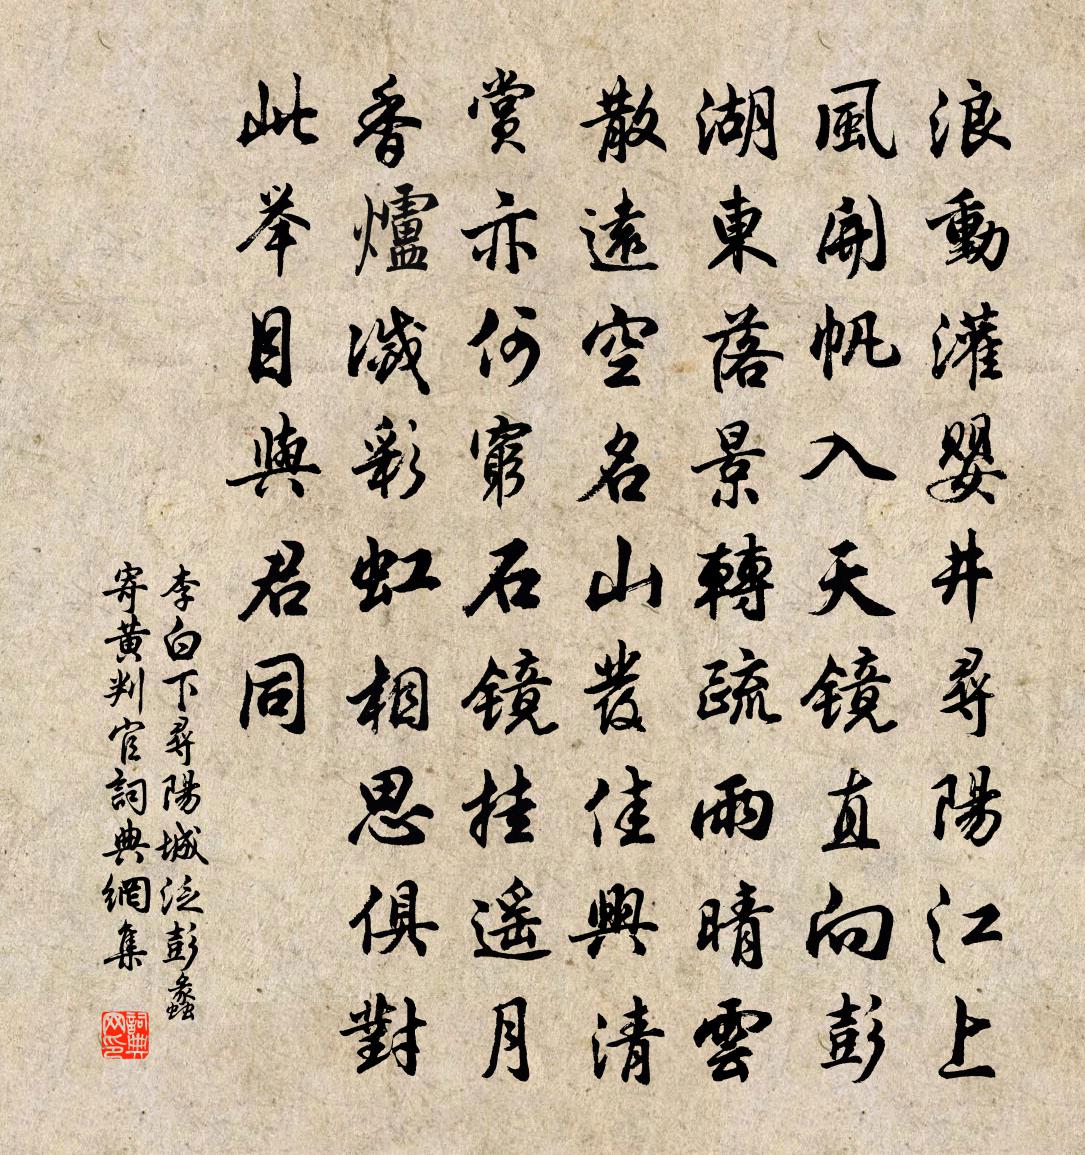 浪動灌嬰井尋陽江上
風開帆入天鏡直向彭
湖東落景轉疏雨晴雲
散遠空名山發佳興清
賞亦何窮石鏡挂遙月
香爐滅彩虹相思俱對
此举目與君同
李白下尋陽城泛彭蠡
寄黃判官詞典網集
詞典
网印